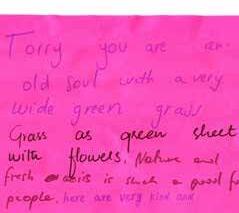 Torry you are an
old soul with a very
wide green grass
Grass as green sheet
with flowers. Nature and
fresh is such a good f
people. here are very kind and